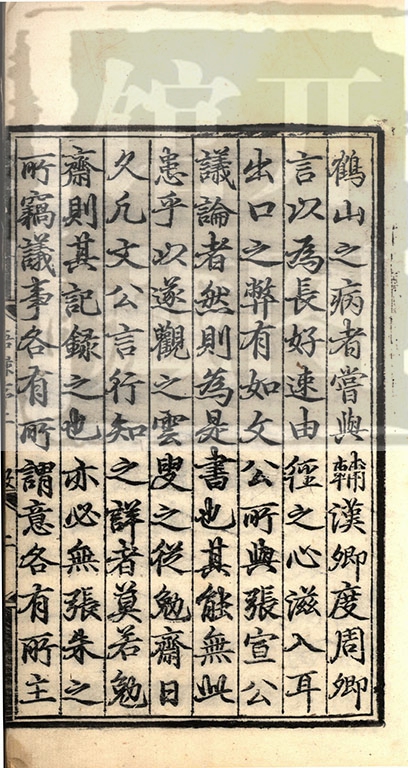 鶴山之病者嘗與輔漢卿度周卿
言以為長好速由徑之心滋入耳
出口之弊有如文公所與張宣公
議論者然則為是書也其能無此
患乎以遂觀之雲叟之從勉齋日
久凡文公言行知之詳者莫若勉
齋則其記録之也亦必無張朱之
所竊議事各有所謂意各有所主